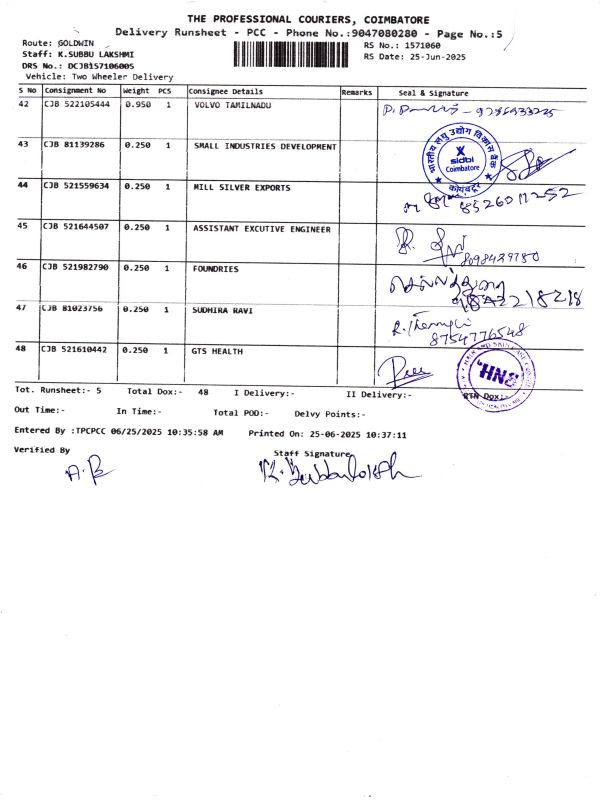 THE PROFESSIONAL COURIERS, COIMBATORE
Delivery Runsheet - PCC - Phone No.:9047080280 - Page No.:5
Route: GOLDWIN
RS No.: 1571060
Staff: K.SUBBU LAKSHMI
RS Date: 25-Jun-2025
DRS No.: DCJB157106005
Vehicle: Two Wheeler Delivery
S No Consignment No Weight PCS Consignee Details Remarks Seal & Signature
42 CJB 522105444 0.950 1 VOLVO TAMILNADU
43 CJB 81139286 0.250 1 SMALL INDUSTRIES DEVELOPMENT
भारतीय लघु उद्योग विकास बैंक
sidbi
Coimbatore
कोयंबटूर
44 CJB 521559634 0.250 1 MILL SILVER EXPORTS
8526011252
45 CJB 521644507 0.250 1 ASSISTANT EXCUTIVE ENGINEER
8098429780
46 CJB 521982790 0.250 1 FOUNDRIES
47 CJB 81023756 0.250 1 SUDHIRA RAVI
8754776548
48 CJB 521610442 0.250 1 GTS HEALTH
Tot. Runsheet:- 5 Total Dox:- 48 I Delivery:- II Delivery:- RTN Dox:-
Out Time:- In Time:- Total POD:- Delvy Points:-
Entered By :TPCPCC 06/25/2025 10:35:58 AM Printed On: 25-06-2025 10:37:11
Verified By
Staff Signature